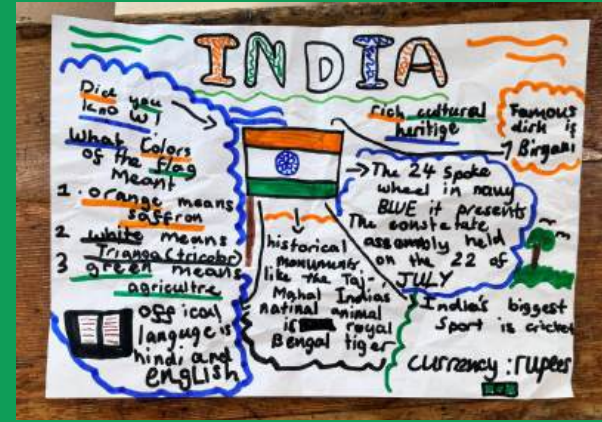 INDIA
Did you
know!
What Colors
of the flag
Meant
1. orange means
saffron
2 white means
Trianga (tricolor)
3 green means
agricultre
official
languge is
hindi and
english
rich cultural
heritige
Famous
dish is
Birgani
The 24 spoke
wheel in navy
BLUE it presents
The constetate
assembly held
on the 22 of
JULY
historical
monuments
like the Taj-
Mahal Indias
natinal animal
is royal
Bengal tiger
India's biggest
Sport is cricket
currency : rupees